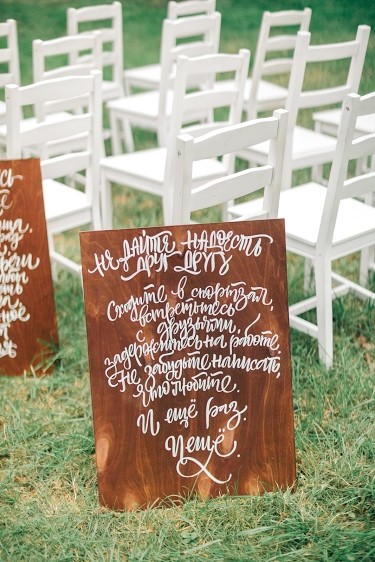 НЕ ДАЙТЕ НАДОЕСТЬ
ДРУГ ДРУГУ
Сходите в спортзал,
встретьтесь
с друзьями,
задержитесь на работе.
Не забудьте написать,
что любите.
И ещё раз.
И ещё.